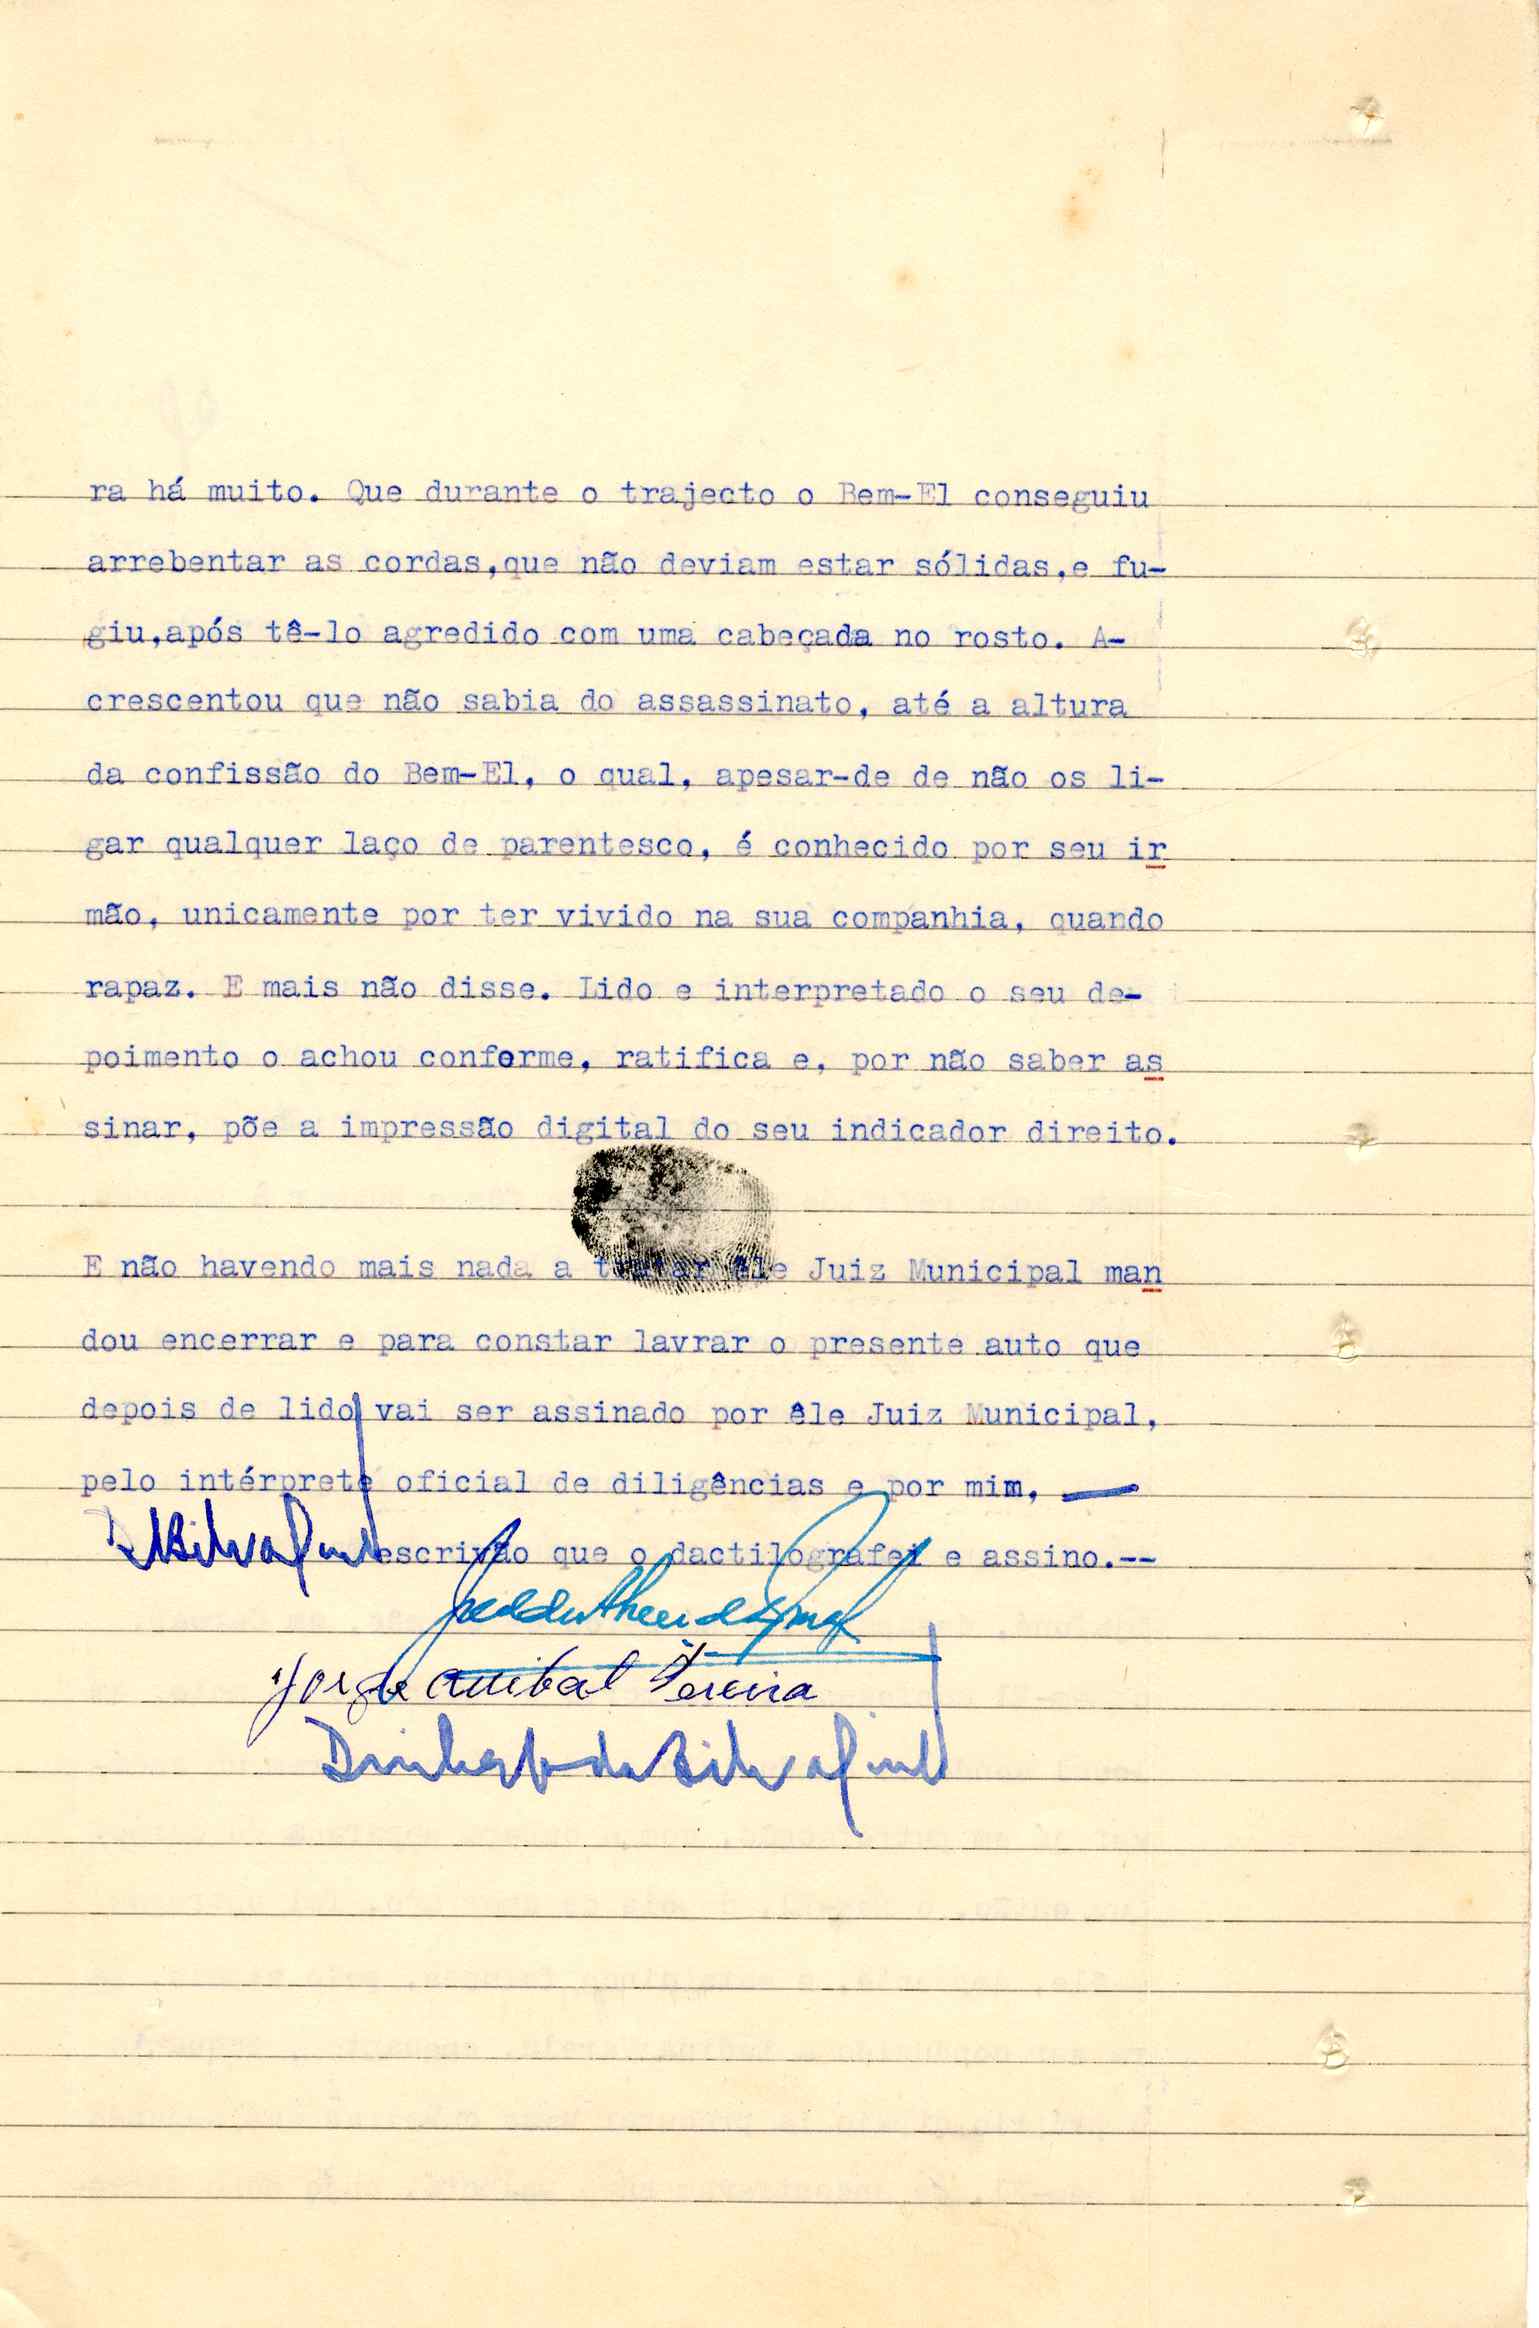 ra há muito. Que durante o trajecto o Bem-El conseguiu
arrebentar as cordas,que não deviam estar sólidas,e fu-
giu,após tê-lo agredido com uma cabeçada no rosto. A-
crescentou que não sabia do assassinato, até a altura
da confissão do Bem-El, o qual, apesar-de de não os li-
gar qualquer laço de parentesco, é conhecido por seu ir
mão, unicamente por ter vivido na sua companhia, quando
rapaz. E mais não disse. Lido e interpretado o seu de-
poimento o achou conforme, ratifica e, por não saber as
sinar, põe a impressão digital do seu indicador direito.
E não havendo mais nada a tratar êle Juiz Municipal man
dou encerrar e para constar lavrar o presente auto que
depois de lido vai ser assinado por êle Juiz Municipal,
pelo intérprete oficial de diligências e por mim, —
escrivão que o dactilografei e assino.--
Jorge Anibal Pereira
da Silva